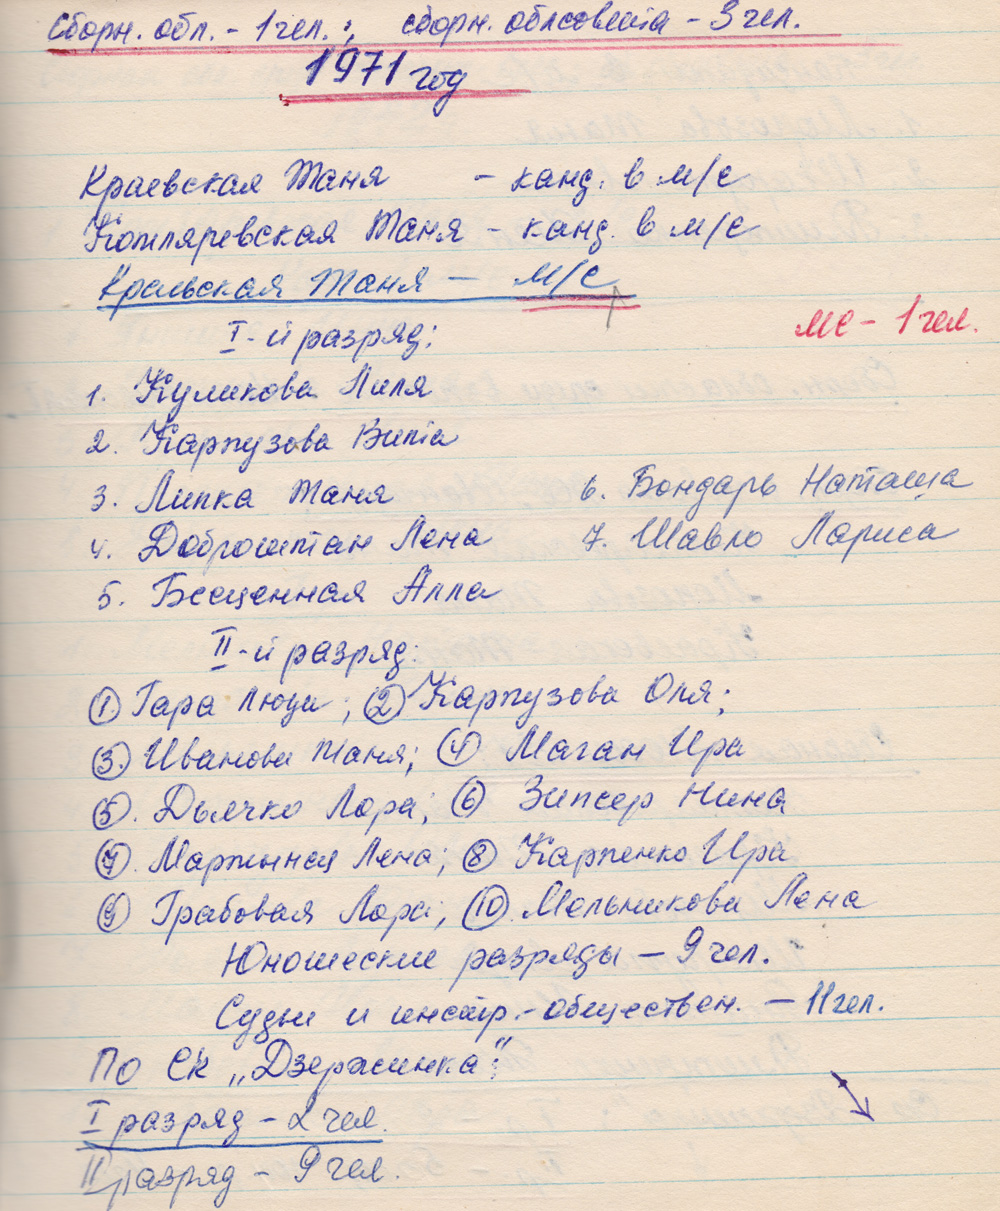 Сборн. обл. - 1 чел.; сборн. облсовета - 3 чел.
1971 год
Краевская Таня - канд. в м/с
Котляревская Таня - канд. в м/с
Кральская Таня - м/с
I-й разряд:
мс - 1 чел.
1. Куликова Лиля
2. Карпузова Вита
3. Липка Таня 6. Бондарь Наташа
4. Доброштан Лена 7. Шавло Лариса
5. Бесценная Алла
II-й разряд:
1 Гара Люди; 2 Карпузова Оля;
3. Иванова Таня; 4 Маган Ира
5. Дьячко Лора; 6 Зипсер Нина
7. Лена; 8 Карпенко Ира
9 Грабовая Лора; 10. Мельникова Лена
Юношеские разряды - 9 чел.
Судьи и инстр.-обществен. - 11 чел.
По СК „Дзержинка":
I разряд - 2 чел.
II разряд - 9 чел.